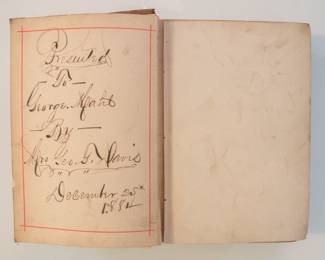 Presented
To —
George
By —
Mrs. Geo. G. Davis
" " "
December 25th
1884